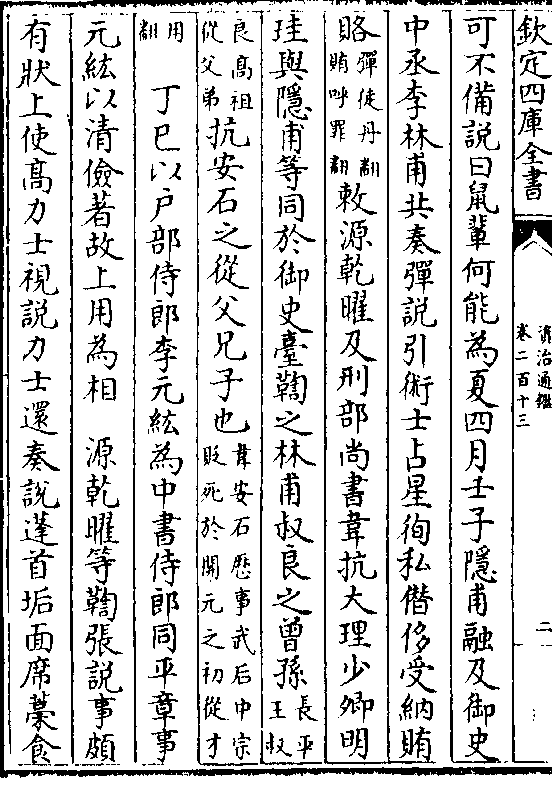 欽定四庫全書
資治通鑑
卷二百十三
二
可不備說曰䑕輩何能為夏四月壬子隱甫融及御史
中丞李林甫共奏彈說引術士占星徇私僣侈受納賄
賂彈徒丹翻
賄呼罪翻敕源乾曜及刑部尚書韋抗大理少卿明
珪與隱甫等同於御史臺鞫之林甫叔良之曾孫長平
王叔
良高祖
從父弟抗安石之從父兄子也韋安石歴事武后中宗
貶死於開元之初從才
用
翻 丁巳以户部侍郎李元紘為中書侍郎同平章事
元紘以清儉著故上用為相 源乾曜等鞫張說事頗
有狀上使髙力士視說力士還奏說蓬首垢面席藁食